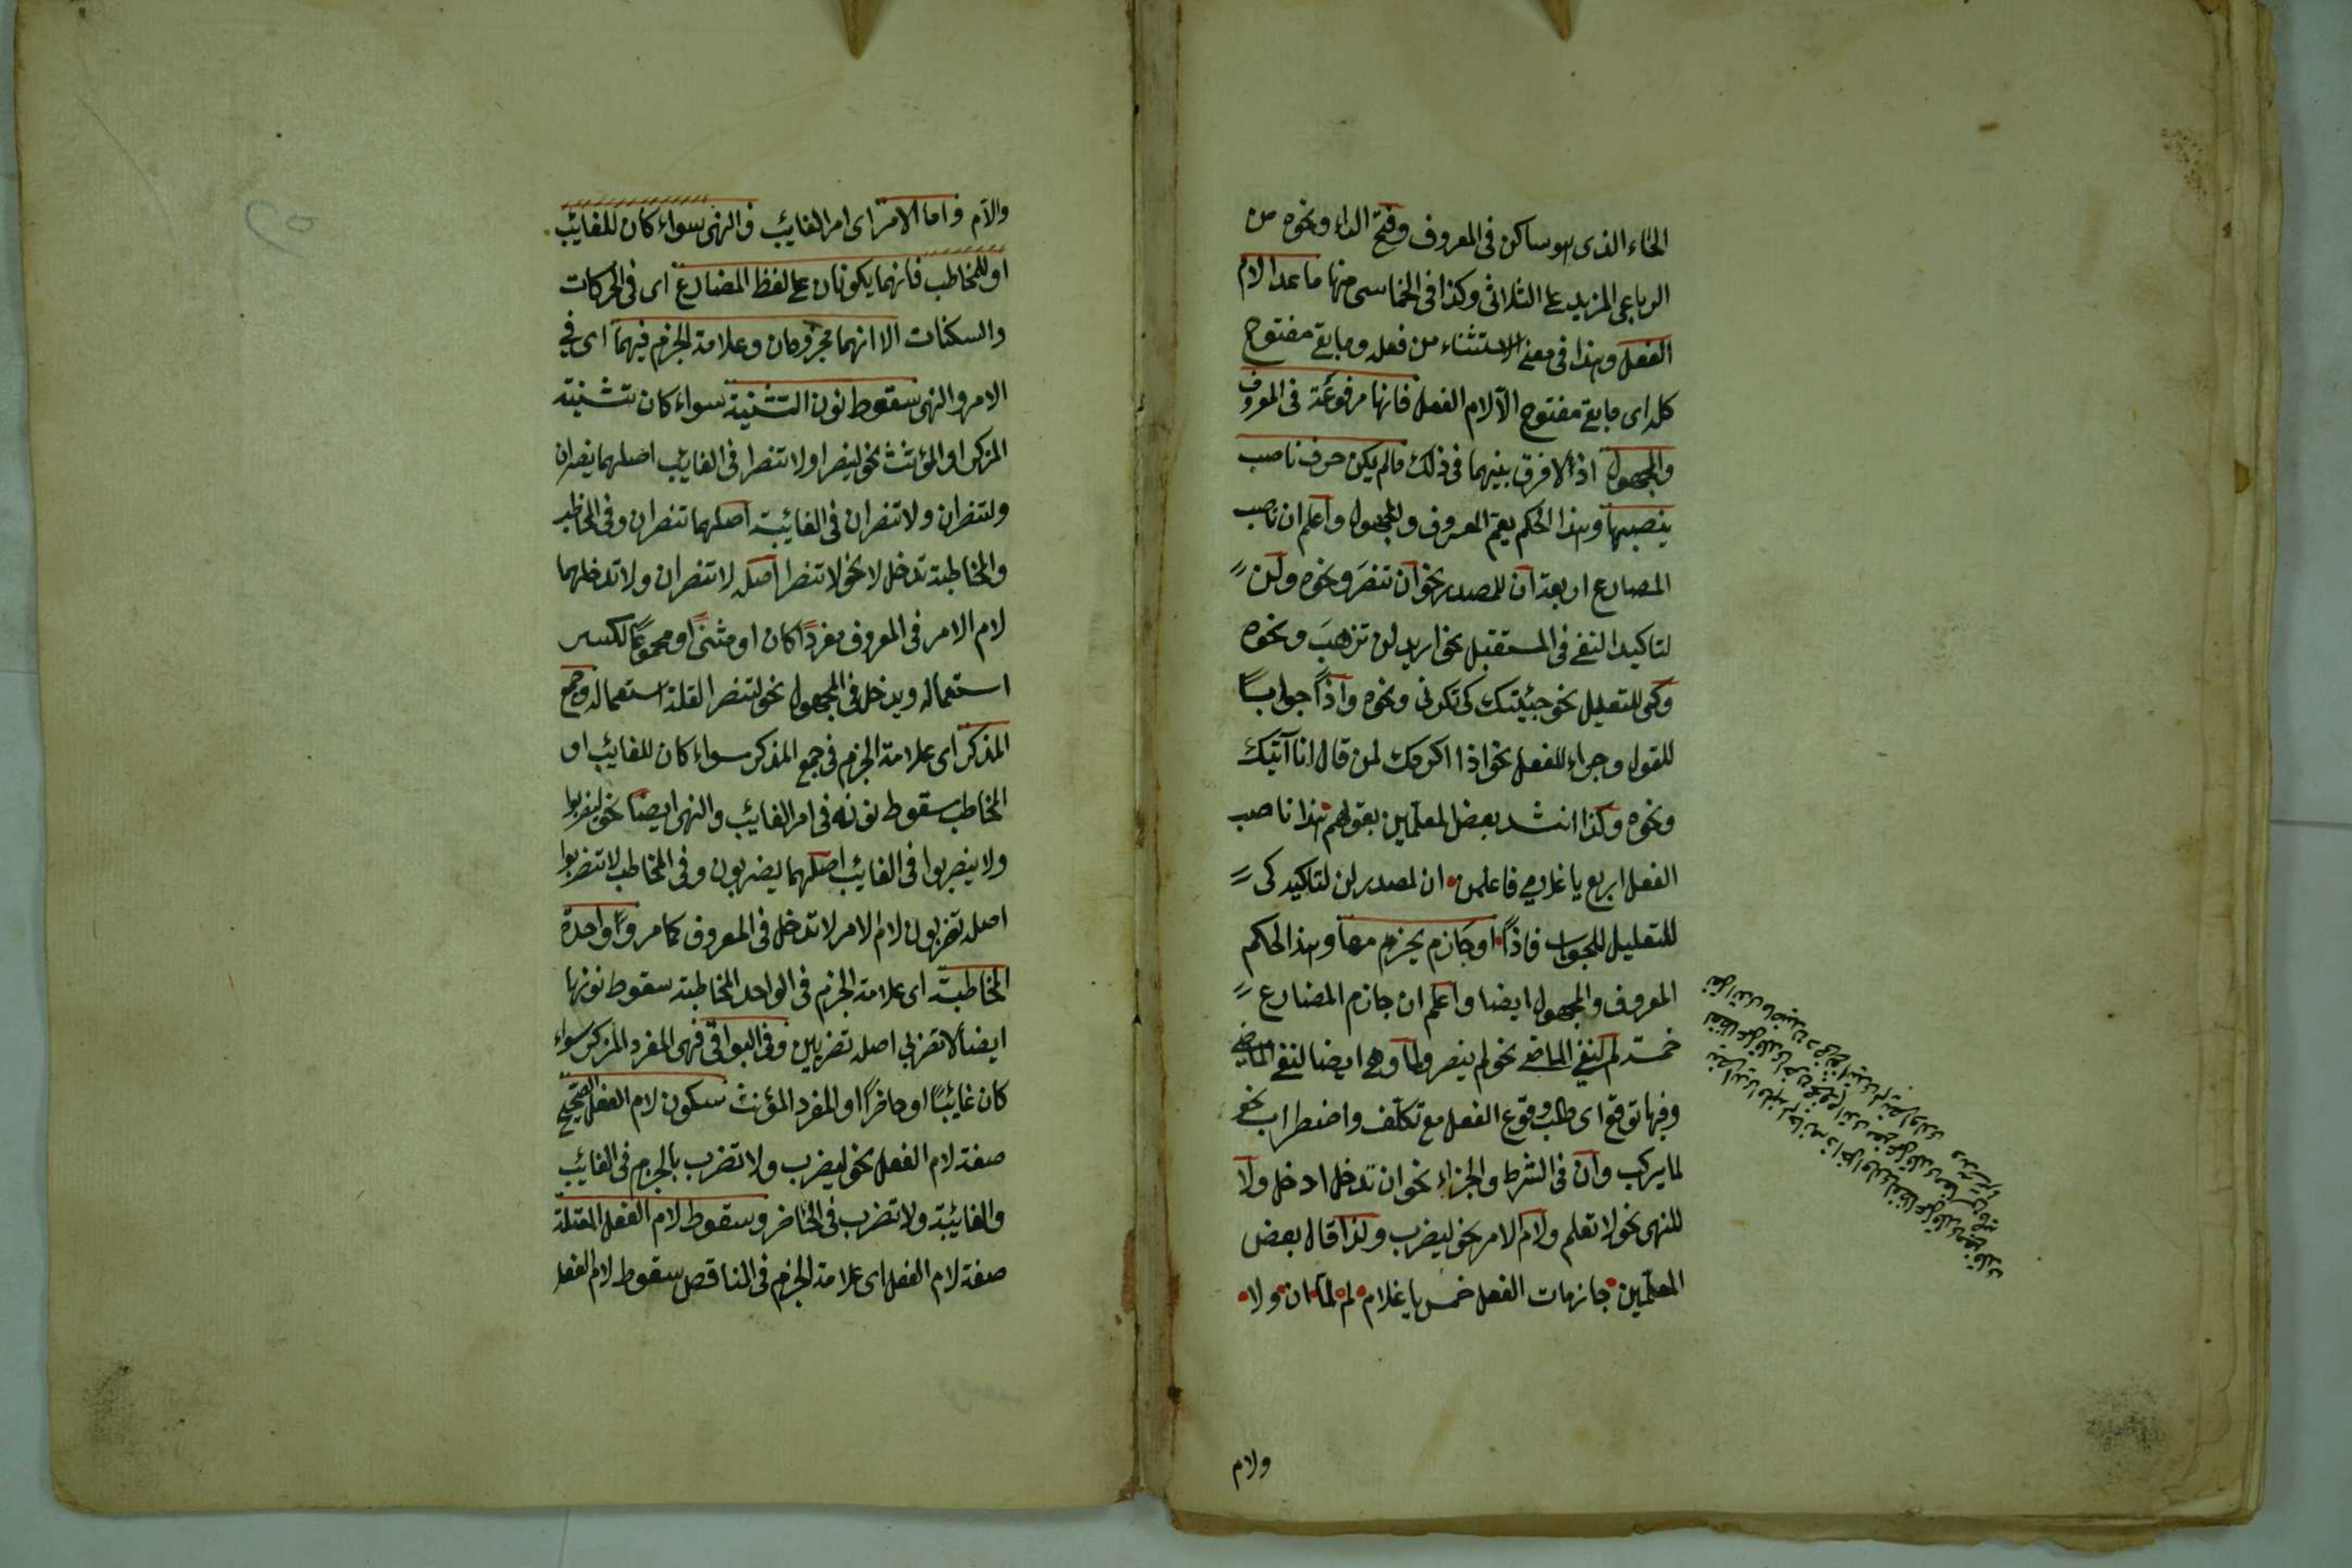 الخاء الذى هو ساكن فى المعروف وفتح الراء ونحوه من
الرباعى المزيد على الثلاثى وكذا فى الخماسى منها ما عدا لام
الفعل وهذا فى معنى الاستثناء من فعله وما بقى مفتوح
كله اى ما بقى مفتوح الا لام الفعل فانها مرفوعة فى المعروف
والمجهول اذ لا فرق بينهما فى ذلك ما لم يكن حرف ناصب
ينصبها وهذا الحكم يعم المعروف والمجهول واعلم ان ناصب
المضارع اربعة ان للمصدر نحو ان تنصر ونحوه ولن
لتاكيد النفى فى المستقبل نحو اريد لن تزهب ونحوه
وكى للتعليل نحو جئيتك كى تكرنى ونحوه واذًا جوابًا
للقول وجزاء للفعل نحو اذا اكرمك لمن قال انا آتيك
ونحوه وكذا انشد بعض المعلمين بقولهم هذا ناصب
الفعل اربع يا غلامى فاعلمن ان لمصدر لن لتاكيد كى
للتعليل للجواب فاذًا او جازم يجزم معا وهذا الحكم
المعروف والمجهول ايضا واعلم ان جازم المضارع
خمسة لم لنفى الماضى نحو لم ينصر ولما وهى ايضا لنفى الماضى
وفيها توقع اى طلب وقوع الفعل مع تكلف واضطراب نحو
لما يركب وان فى الشرط والجزاء نحو ان تدخل ادخل ولا
للنهى نحو لا تعلم ولام الامر نحو ليضرب ولذا قال بعض
المعلمين جازمات الفعل خمس يا غلام لم لما ان ولا
ولام
والام واما الامر اى امر الغايب والنهى سواء كان للغايب
او للمخاطب فانهما يكونان على لفظ المضارع اى فى الحركات
والسكنات الا انهما مجزومان وعلامة الجزم فيهما اى فى
الامر والنهى سقوط نون التثنية سواء كان تثنية
المزكر او المؤنث نحو لينصرا ولا تنصرا فى الغايب اصلهما ينصران
ولتنصران ولا تنصران فى الغائبة اصلهما تنصران وفى المخاطب
والمخاطبة تدخل لا نحو لا تنصرا اصله لا تنصران ولا تدخلهما
لام الامر فى المعروف مفردًا كان او مثنىً او مجموعًا لكسر
استعماله ويدخل فى المجهول نحو لتنصر القلة استعماله وجمع
المذكر اى علامة الجزم فى جمع المذكر سواء كان للغايب او
المخاطب سقوط نونه فى امر الغايب والنهى ايضا نحو ليضربوا
ولا يضربوا فى الغايب اصلهما يضربون وفى المخاطب لا تضربوا
اصله تضربون لام الامر لا تدخل فى المعروف كما مر واحدة
المخاطبة اى علامة الجزم فى الواحد المخاطبة سقوط نونها
ايضًا لا تضربى اصله تضربين وفى البواقى فهى المفرد المزكر سواء
كان غائبًا او حاضرًا او المفرد المؤنث سكون لام الفعل الصحيح
صفة لام الفعل نحو ليضرب ولا تضرب بالجزم فى الغائب
والغائبة ولا تضرب فى الحاضر وسقوط لام الفعل المعتلة
صفة لام الفعل اى علامة الجزم فى المناقص سقوط لام الفعل